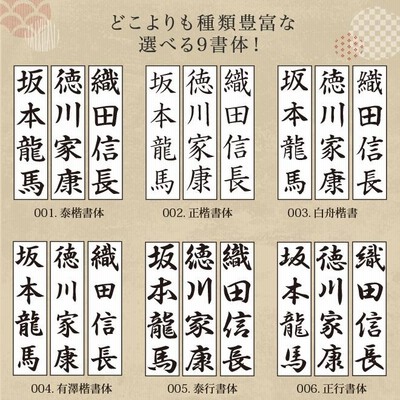 どこよりも種類豊富な
選べる9書体!
織田信長
徳川家康
坂本龍馬
001. 泰楷書体
織田信長
徳川家康
坂本龍馬
002. 正楷書体
織田信長
徳川家康
坂本龍馬
003. 白舟楷書
織田信長
徳川家康
坂本龍馬
004. 有澤楷書体
織田信長
徳川家康
坂本龍馬
005. 泰行書体
織田信長
徳川家康
坂本龍馬
006. 正行書体